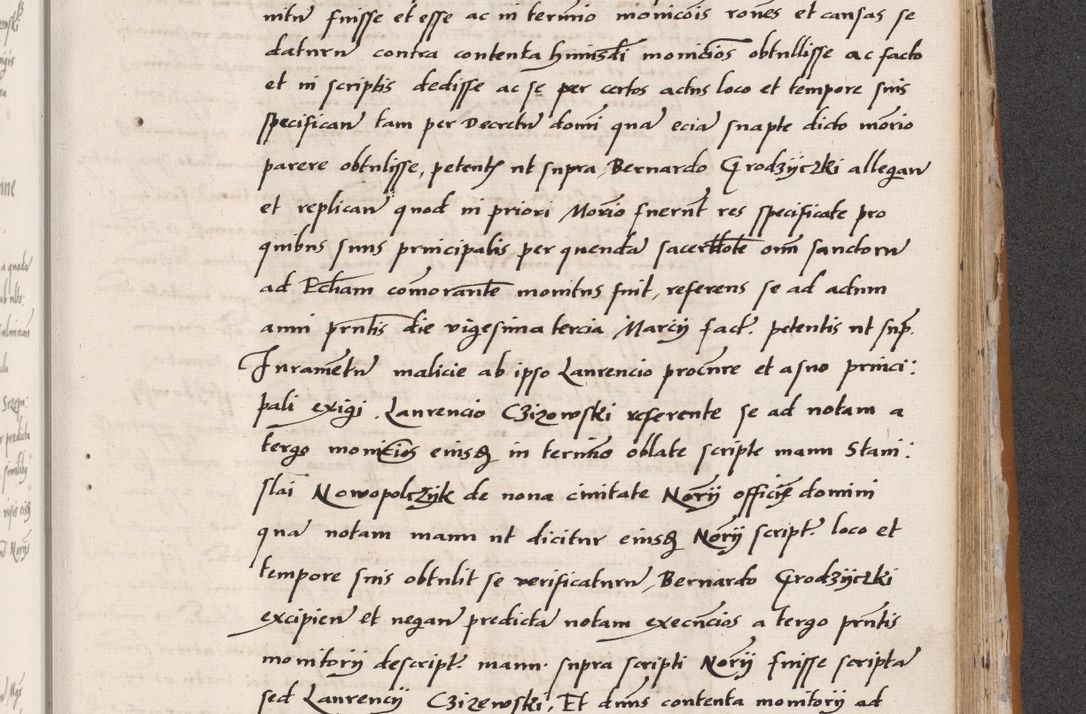 nitu fuisse et esse ac in termino monicois rones et causas se
daturu contra contenta huiusdi monicios obtulisse ac facto
et in scriptis dedisse ac se per certos actus loco et tempore suis
specifican tam per Decretu domi qua ecia snapte dicto morio
parere obtulisse, petent ut supra Bernardo Grodzyczki allegan
et replican quod in priori Morio fuerut res specificate pro
quibus suus principalis per quenda sacerdote oim sanctoru
ad Eccliam comorante monitus fuit, referens se ad actum
anni prntis die vigesima tercia Marcij fact. petentis ut sup.
Jurametu malicie ab ipso Laurencio procure et a suo princi:
pali exigi. Laurencio Czizowski referente se ad notam a
tergo monicios eiusq in termino oblate scripte manu Stani:
slai Nowopolczyk de nona civitate Norij officij domini
qua notam manu ut dicitur eiusq Norij script. loco et
tempore suis obtulit se verificaturu, Bernardo Grodzyczki
excipien et negan predicta notam execucios a tergo prntis
monitorij descript. manu supra scripti Norij fuisse scripta
sed Laurencij Czizewski, Et dnus contenta monitorij ad